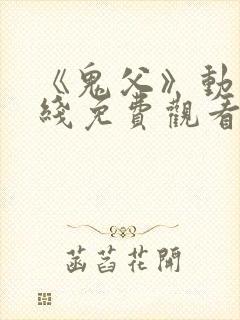 《鬼父》動
綫免費觀看
菡萏花開